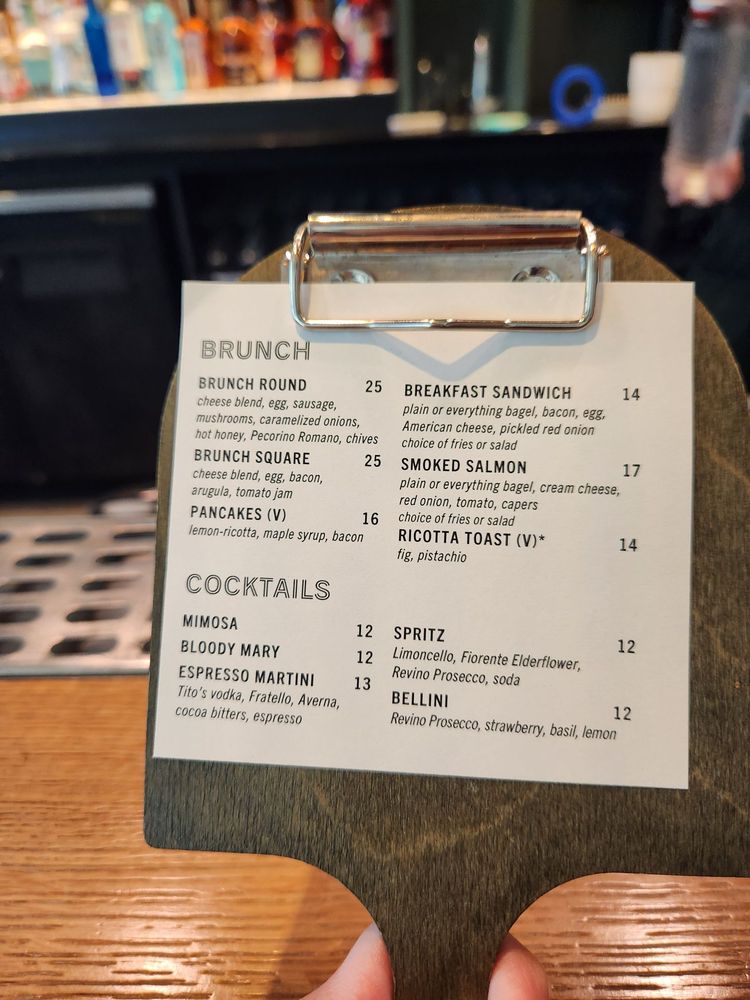 BRUNCH
BRUNCH ROUND 25
cheese blend, egg, sausage,
mushrooms, caramelized onions,
hot honey, Pecorino Romano, chives
BRUNCH SQUARE 25
cheese blend, egg, bacon,
arugula, tomato jam
PANCAKES (V) 16
lemon-ricotta, maple syrup, bacon
BREAKFAST SANDWICH 14
plain or everything bagel, bacon, egg,
American cheese, pickled red onion
choice of fries or salad
SMOKED SALMON 17
plain or everything bagel, cream cheese,
red onion, tomato, capers
choice of fries or salad
RICOTTA TOAST (V)* 14
fig, pistachio
COCKTAILS
MIMOSA 12
BLOODY MARY 12
ESPRESSO MARTINI 13
Tito's vodka, Fratello, Averna,
cocoa bitters, espresso
SPRITZ 12
Limoncello, Fiorente Elderflower,
Revino Prosecco, soda
BELLINI 12
Revino Prosecco, strawberry, basil, lemon